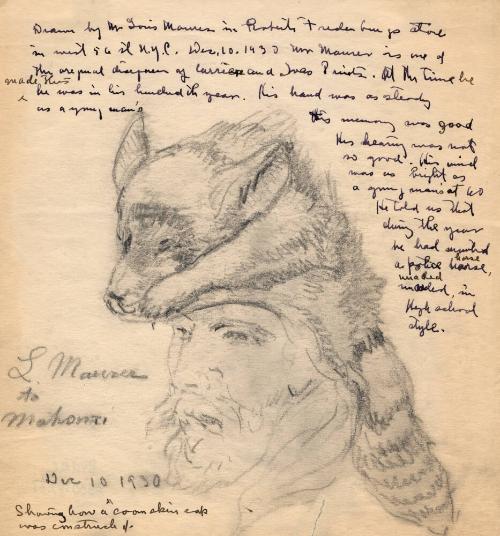 Drawn by Mr Louis Maurer in Roberts Fredenburgs store
in west 56 st N.Y.C. Dec, 10. 1930 Mr Maurer is one of
the orignal diagners of Currier and Ives Prints. At the time he
made this
he was in his hundreth year. His hand was as steady
as a young man's
His memory was good
His hearing was not
so good. His mind
was as bright as
a young mans at 40
He told us that
during the year
he had
a police horse,
horse
in
High school
style.
L. Maurer
to
Dec 10 1930
Showing how a coonskin cap
was constructed